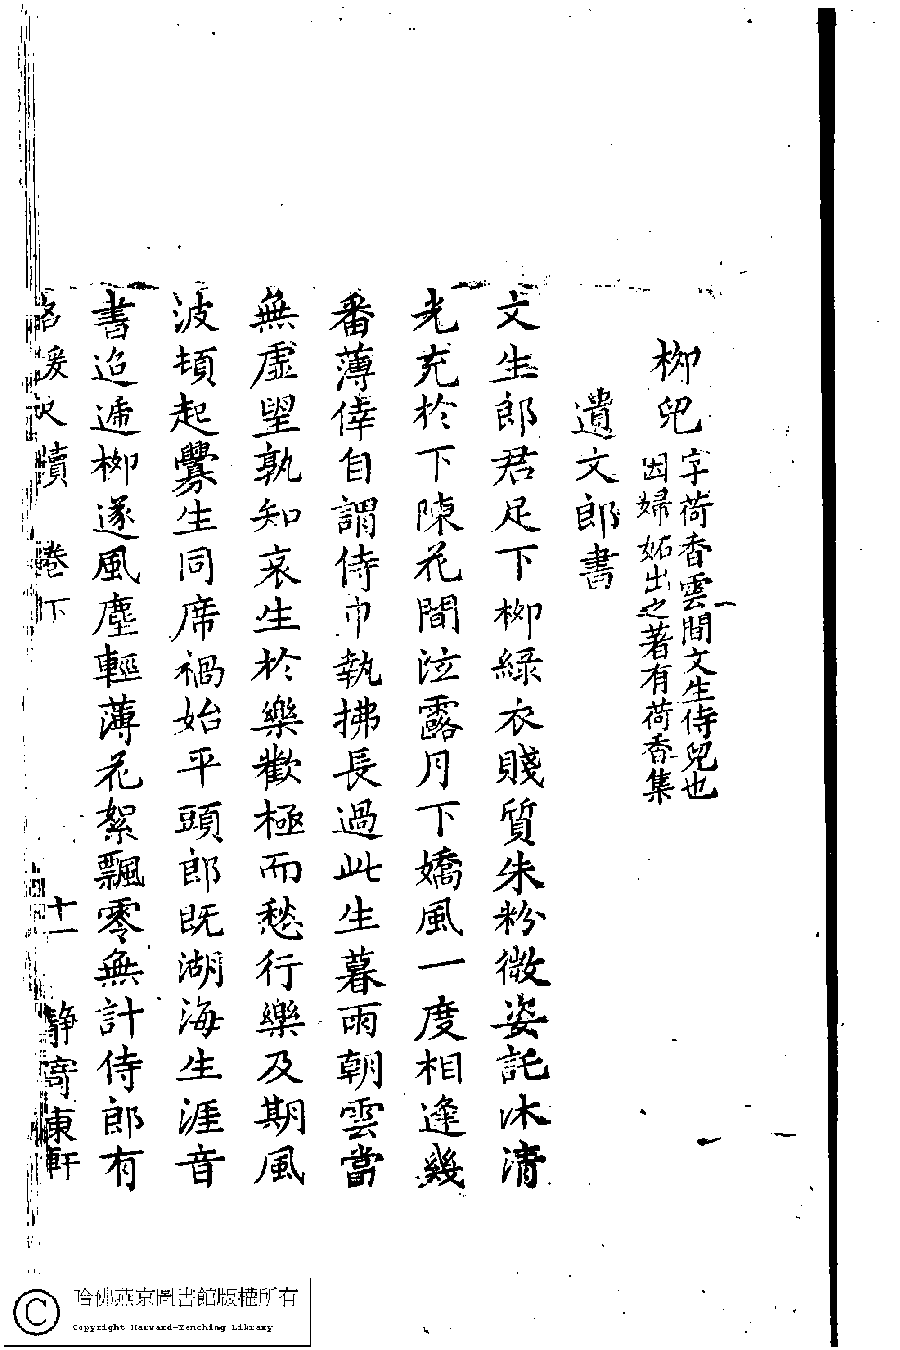 栁兒
字荷香雲間文生侍兒也
因婦妬出之著有荷香集
遺文郎書
文生郎君足下栁緑衣賤質朱粉微姿託沐清
光充於下陳花間泣露月下嬌風一度相逢幾
番薄倖自謂侍巾執拂長過此生暮雨朝雲當
無虚望孰知哀生於樂歡極而愁行樂及期風
波頓起釁生同席禍始平頭郎既湖海生涯音
書迢遞栁遂風塵輕薄花絮飄零無計侍郎有
名媛尺牘 卷下 十一 靜寄東軒
哈佛燕京圖書館版權所有
Copyright Harvard-Yenching Library